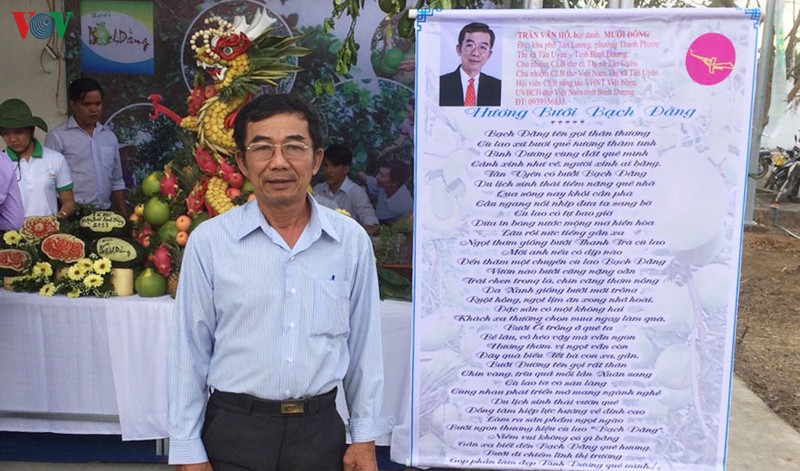 VOV
Bạch Đằng
TRẦN VĂN HỔ, bút danh MƯỜI ĐÔNG
Đ/c: khu phố Tân Lương, phường Thạnh Phước
Thị xã Tân Uyên - Tỉnh Bình Dương
Chủ nhiệm CLB thơ ca Thị xã Tân Uyên.
Chủ nhiệm CLB thơ Việt Nam Thị xã Tân Uyên.
Hội viên CLB sáng tác VHNT Việt Nam.
UVBCH thơ Việt Nam tỉnh Bình Dương
Hương Bưởi Bạch Đằng
Bạch Đằng tên gọi thân thương
Cù lao xứ bưởi quê hương thắm tình
Bình Dương vùng đất quê mình
Cảnh xinh như vẽ người xinh ai bằng.
Tân Uyên có bưởi Bạch Đằng
Du lịch sinh thái tiềm năng quê nhà
Qua sông nay khỏi cần phà
Cầu ngang nối nhịp đưa ta sang bờ
Cù lao có tự bao giờ
Đưa in bóng nước mộng mơ hiền hòa
Lâu rồi nức tiếng gần xa
Ngọt thơm giống bưởi Thanh Trà cù lao
Mời anh nếu có dịp nào
Đến thăm một chuyến cù lao Bạch Đằng
Vườn nào bưởi cũng nặng oằn
Trái chen trong lá, chín căng thơm nồng
Da Xanh giống bưởi mới trồng
Ruột hồng, ngọt lịm ăn xong nhớ hoài.
Đặc sản có một không hai
Khách xa thường chọn mua ngay làm quà.
Bưởi Ổi trồng ở quê ta
Để lâu, vỏ héo vậy mà vẫn ngon
Hương thơm, vị ngọt vẫn còn
Đây quà biếu Tết bà con xa, gần.
Bưởi Đường tên gọi rất thân
Chín vàng, trĩu quả mỗi lần Xuân sang
Cù lao ta có sẵn làng
Cùng nhau phát triển mở mang ngành nghề
Du lịch sinh thái vườn quê
Đồng tâm hiệp lực hướng về đỉnh cao
Làm ra sản phẩm ngọt ngào
Bưởi ngon thương hiệu cù lao "Bạch Đằng".
Niềm vui không có gì bằng
Gần xa biết đến Bạch Đằng quê hương.
Bưởi đi chiếm lĩnh thị trường
Góp phần làm đẹp Bình Dương quê mình.